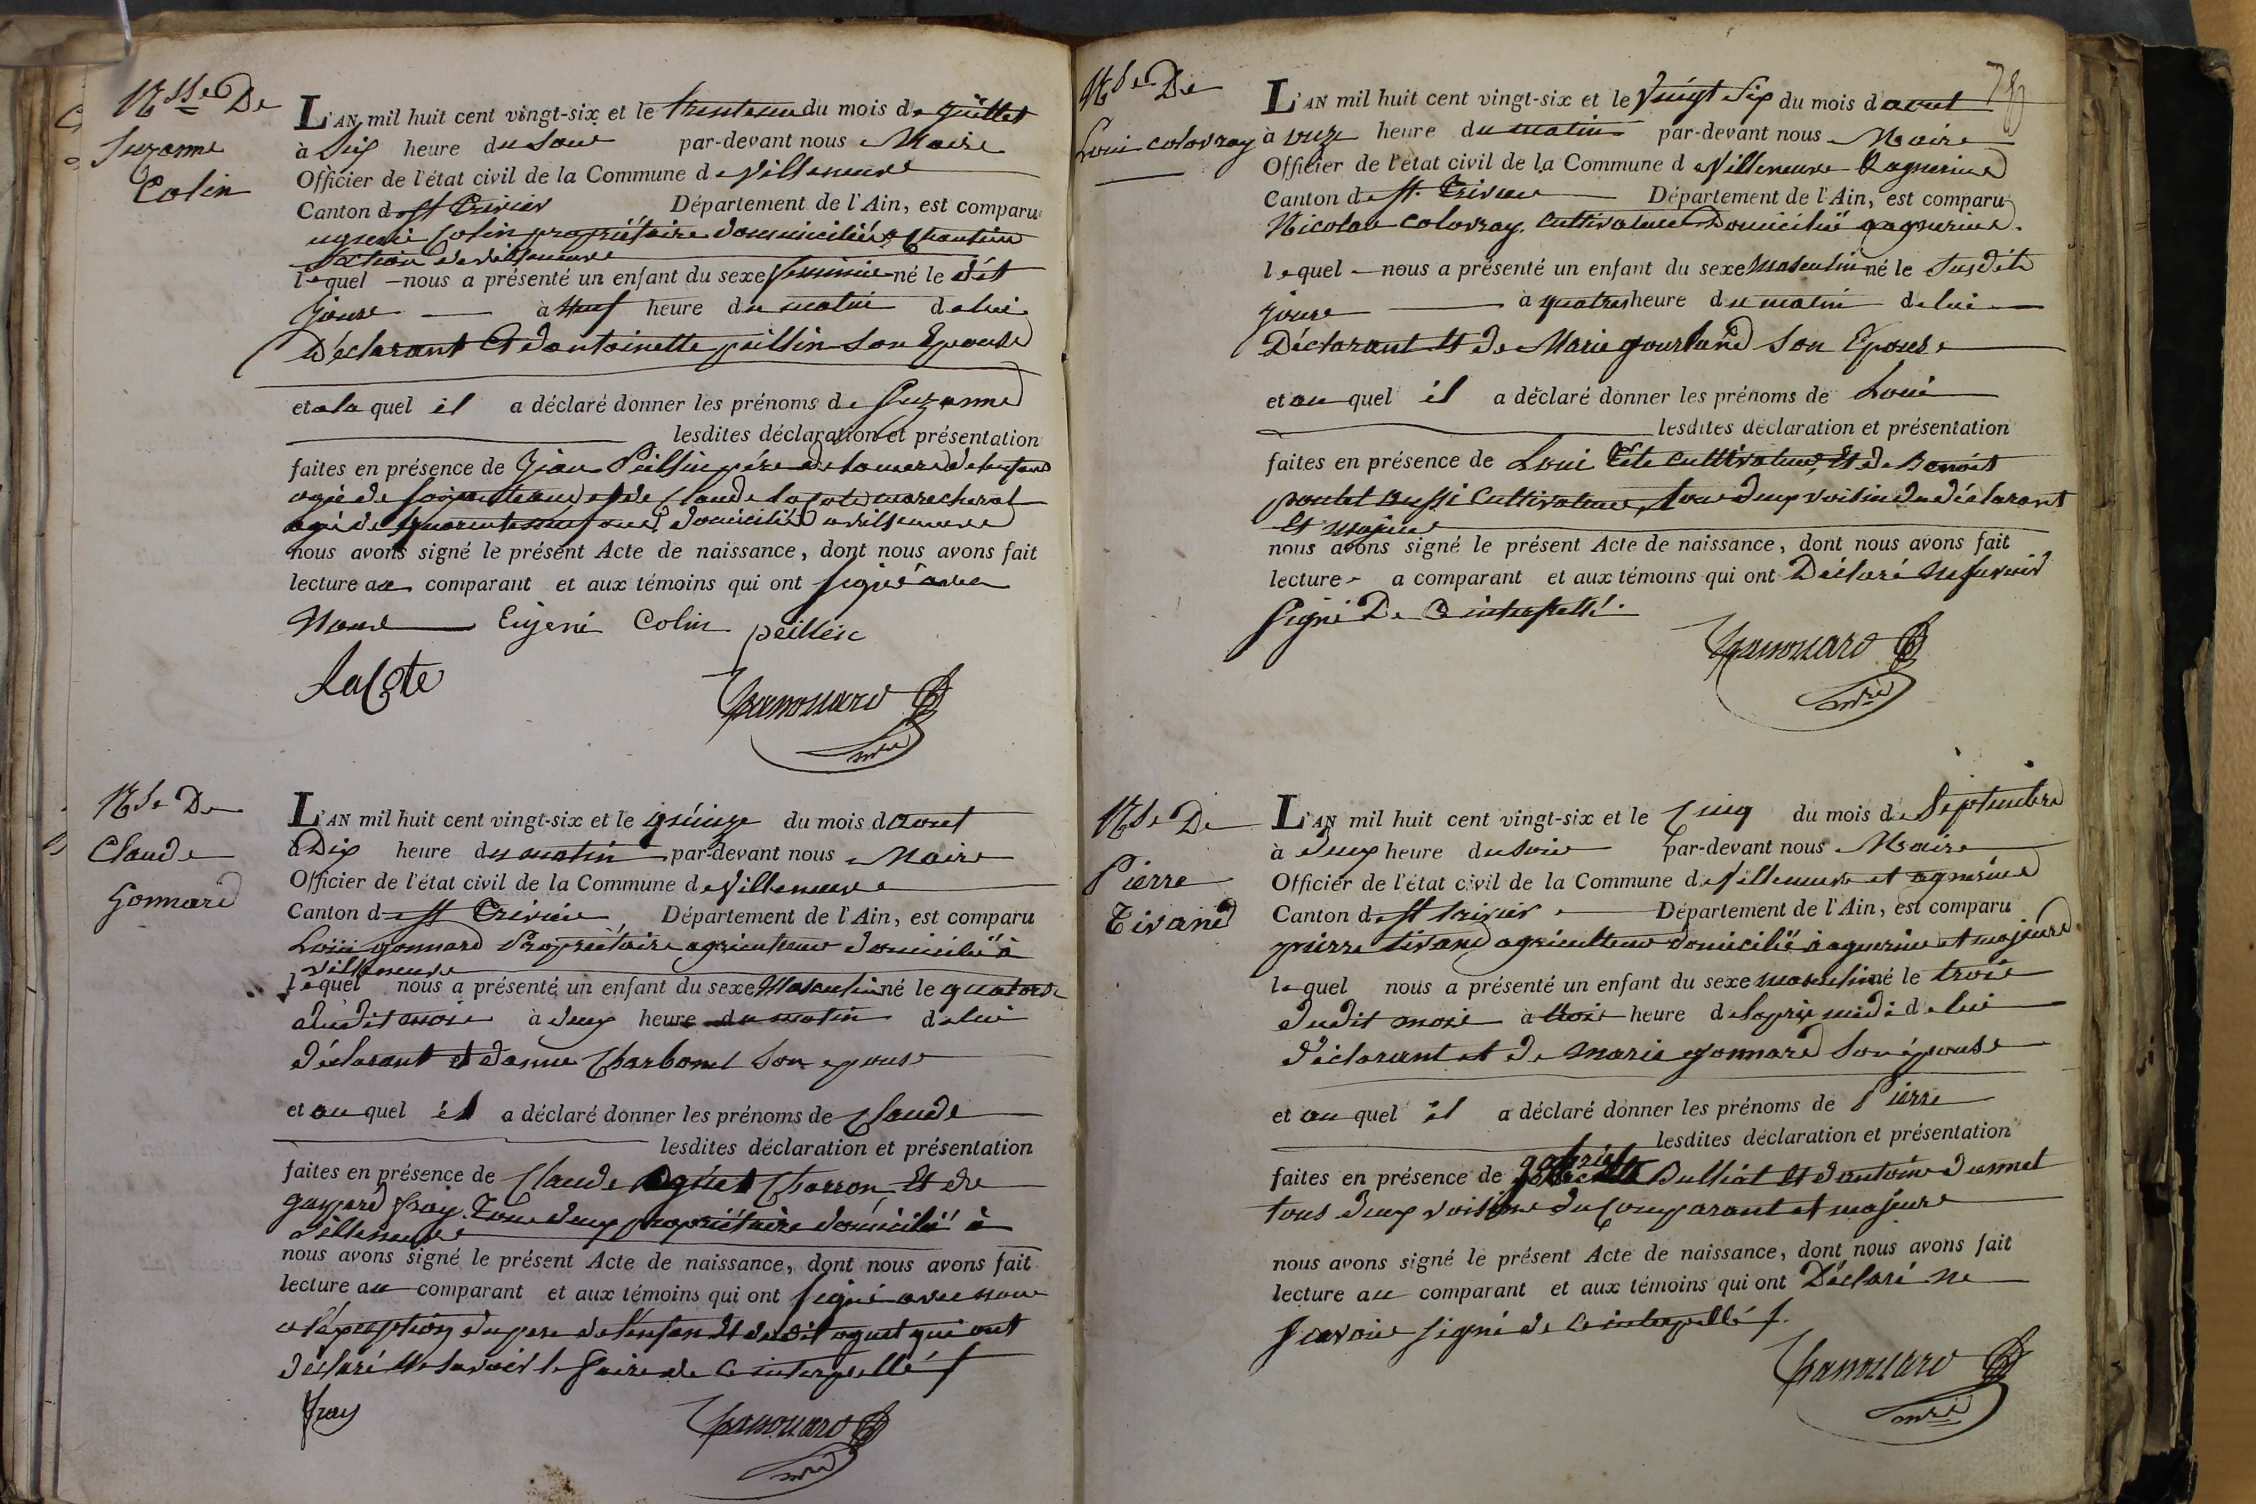 Nsse De
Suzanne
Colin
L'AN mil huit cent vingt-six et le trente un du mois de Juillet
à Six heure du Soir par-devant nous Maire
Officier de l'état civil de la Commune de villeneuve
Canton de St Trivier Département de l'Ain, est comparu
Colin propriétaire domicilié à
Section de villeneuve
lequel nous a présenté un enfant du sexe feminin né le dit
Jour à Neuf heure du matin de lui
Déclarant et d'antoinette peillin Son Epouse
et a la quel il a déclaré donner les prénoms de Suzanne
lesdites déclaration et présentation
faites en présence de père de la mere de lenfant
agé de et de Claude la Cote marechal
agé de quarente neuf ans domicilié a villeneuve
nous avons signé le présent Acte de naissance, dont nous avons fait
lecture au comparant et aux témoins qui ont Signé avec
Nous Eujeni Colin peillin
LaCôte
Chanouard
mre
Nse De
Claude
Gonnard
L'AN mil huit cent vingt-six et le quinze du mois d aout
à Dix heure du matin par-devant nous Maire
Officier de l'état civil de la Commune de villeneuve
Canton de St Trivier Département de l'Ain, est comparu
Loui gonnard Propriétaire agriculteur domicilié à
villeneuve
lequel nous a présenté un enfant du sexe Masculin né le quatorze
dudit mois à deux heure du matin de lui
déclarant et d'anne Charbonel Son epouse
et au quel il a déclaré donner les prénoms de Claude
lesdites déclaration et présentation
faites en présence de Claude Oguet Charron Et de
gaspard fray. Tous deux propriétaire domicilié à
villeneuve
nous avons signé le présent Acte de naissance, dont nous avons fait
lecture au comparant et aux témoins qui ont Signé avec nous
a l'exception du pere de l'enfan Et dudit oguet qui ont
déclaré Ne Savoir le faire de ce interpellé
fray
Chanouard
mre
Nse De
Loui colovray
L'AN mil huit cent vingt-six et le Vingt Six du mois d aout
à onze heure du matin par-devant nous Maire
Officier de l'état civil de la Commune de Villeneuve & agnerins
Canton de St. Trivier Département de l'Ain, est comparu
Nicolas colovray. cultivateur Domicilié a agnerins.
lequel nous a présenté un enfant du sexe masculin né le Susdit
jour à quatres heure du matin de lui
Déclarant Et de Marie gourland Son Epouse
et au quel il a déclaré donner les prénoms de Loui
lesdites déclaration et présentation
faites en présence de Loui cultivateur, Et de Benoit
poulet aussi Cultivateur, tous deux voisin du déclarant
Et majeur
nous avons signé le présent Acte de naissance, dont nous avons fait
lecture a comparant et aux témoins qui ont Déclaré Ne Savoir
Signé De Ce interpellé.
Chanouard
mre
Nse De
Pierre
Tivand
L'AN mil huit cent vingt-six et le Cinq du mois de Septembre
à deux heure du soir par-devant nous Maire
Officier de l'état civil de la Commune de Villeneuve et agnerins
Canton de St trivier Département de l'Ain, est comparu
pierre tivand agriculteur domicilié à agnerins et majeure
lequel nous a présenté un enfant du sexe masculin né le trois
dudit mois à trois heure de laprés midi de lui
déclarant et de marie gonnard Son épouse
et au quel il a déclaré donner les prénoms de Pierre
lesdites déclaration et présentation
faites en présence de gabriel Bulliat Et d'antoine
tous deux voisins du Comparant et majeurs
nous avons signé le présent Acte de naissance, dont nous avons fait
lecture au comparant et aux témoins qui ont Déclaré Ne
Scavoir Signé de Ce interpellé.
Chanouard
mre